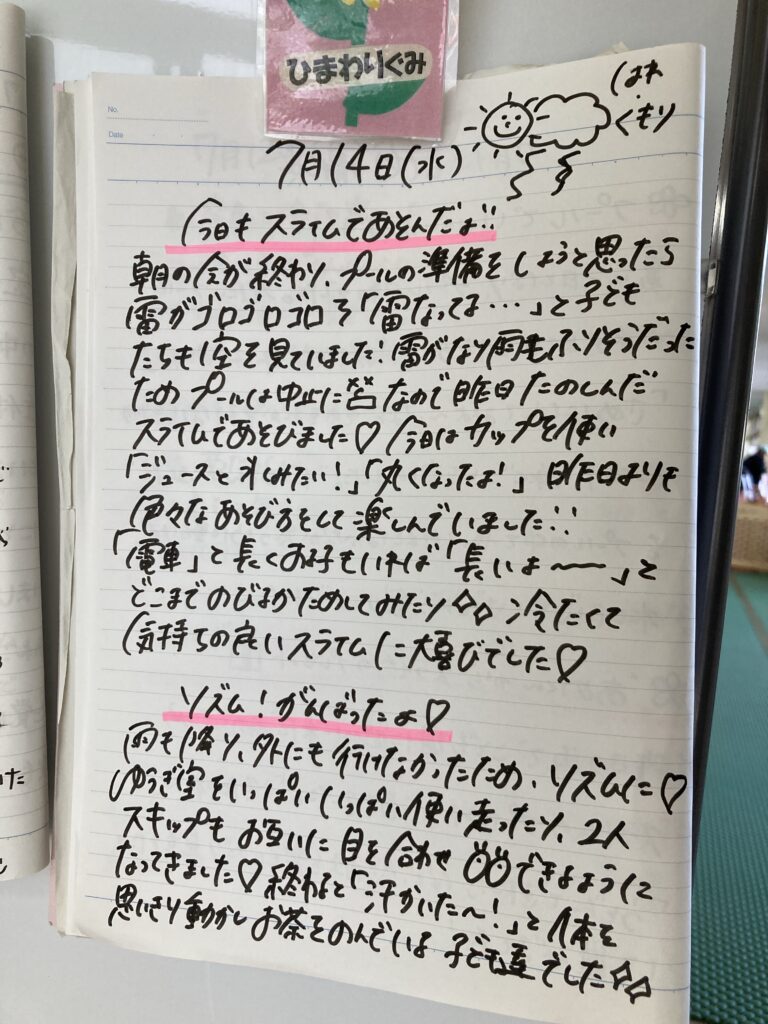 ひまわりぐみ
No.
Date
はれ
くもり
7月14日(水)
今日もスライムであそんだよ!!
朝の会が終わり、プールの準備をしようと思ったら
雷がゴロゴロゴロ 「雷なってる…」と子ども
たちも空を見ていました!雷がなり雨もふりそうだった
ためプールは中止に なので昨日たのしんだ
スライムであそびました♡ 今日はカップを使い
「ジュースと氷みたい!」「丸くなったよ!」昨日よりも
色々なあそび方をして楽しんでいました!!
「電車」と長くする子もいれば「長いよ〜」と
どこまでのびるかためしてみたり 冷たくて
気持ちの良いスライムに大喜びでした♡
リズム!がんばったよ♡
雨も降り、外にも行けなかったため、リズムに♡
ゆうぎ室をいっぱいいっぱい使い走ったり、2人
スキップもお互いに目を合わせできるように
なってきました♡終わると「汗かいた〜!」と体を
思いきり動かしお茶をのんでいる子ども達でした